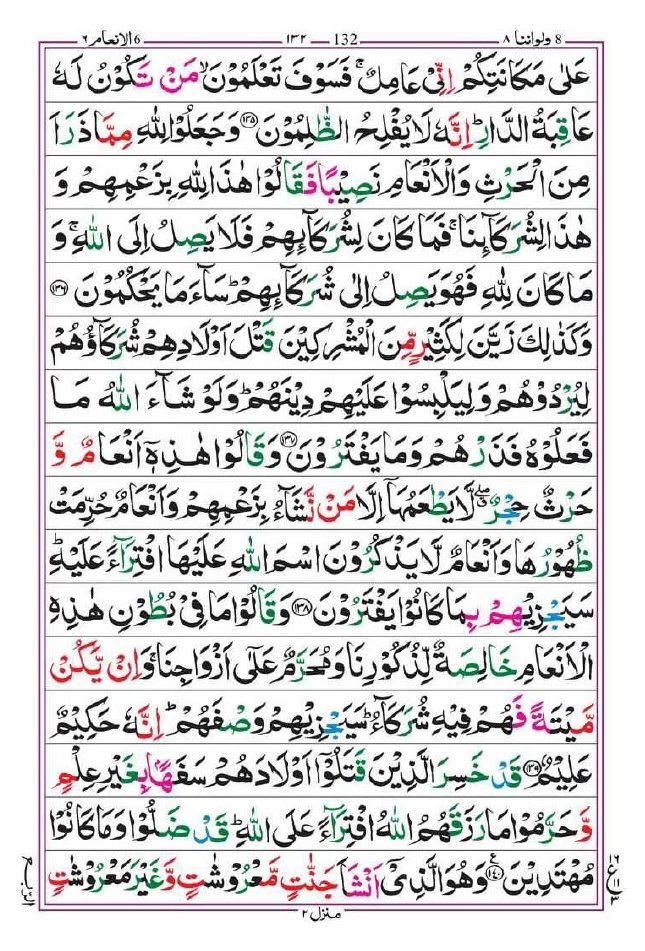 ٦ الانعام 6 ١٣٢ 132 ولواننا ٨ 8
عَلٰى مَكَانَتِكُمْ اِنِّىْ عَامِلٌ ۚ فَسَوْفَ تَعْلَمُوْنَ ۙ مَنْ تَكُوْنُ لَهٗ
عَاقِبَةُ الدَّارِ ؕ اِنَّهٗ لَا يُفْلِحُ الظّٰلِمُوْنَ ﴿۱۳۵﴾ وَجَعَلُوْا لِلّٰهِ مِمَّا ذَرَاَ
مِنَ الْحَرْثِ وَالْاَنْعَامِ نَصِيْبًا فَقَالُوْا هٰذَا لِلّٰهِ بِزَعْمِهِمْ وَ
هٰذَا لِشُرَكَآئِنَا ۚ فَمَا كَانَ لِشُرَكَآئِهِمْ فَلَا يَصِلُ اِلَى اللّٰهِ ۚ وَ
مَا كَانَ لِلّٰهِ فَهُوَ يَصِلُ اِلٰى شُرَكَآئِهِمْ ؕ سَآءَ مَا يَحْكُمُوْنَ ﴿۱۳۶﴾
وَكَذٰلِكَ زَيَّنَ لِكَثِيْرٍ مِّنَ الْمُشْرِكِيْنَ قَتْلَ اَوْلَادِهِمْ شُرَكَآؤُهُمْ
لِيُرْدُوْهُمْ وَلِيَلْبِسُوْا عَلَيْهِمْ دِيْنَهُمْ ؕ وَلَوْ شَآءَ اللّٰهُ مَا
فَعَلُوْهُ فَذَرْهُمْ وَمَا يَفْتَرُوْنَ ﴿۱۳۷﴾ وَقَالُوْا هٰذِهٖۤ اَنْعَامٌ وَّ
حَرْثٌ حِجْرٌ ۖ لَّا يَطْعَمُهَاۤ اِلَّا مَنْ نَّشَآءُ بِزَعْمِهِمْ وَاَنْعَامٌ حُرِّمَتْ
ظُهُوْرُهَا وَاَنْعَامٌ لَّا يَذْكُرُوْنَ اسْمَ اللّٰهِ عَلَيْهَا افْتِرَآءً عَلَيْهِ ؕ
سَيَجْزِيْهِمْ بِمَا كَانُوْا يَفْتَرُوْنَ ﴿۱۳۸﴾ وَقَالُوْا مَا فِىْ بُطُوْنِ هٰذِهِ
الْاَنْعَامِ خَالِصَةٌ لِّذُكُوْرِنَا وَمُحَرَّمٌ عَلٰٓى اَزْوَاجِنَا ۚ وَاِنْ يَّكُنْ
مَّيْتَةً فَهُمْ فِيْهِ شُرَكَآءُ ؕ سَيَجْزِيْهِمْ وَصْفَهُمْ ؕ اِنَّهٗ حَكِيْمٌ
عَلِيْمٌ ﴿۱۳۹﴾ قَدْ خَسِرَ الَّذِيْنَ قَتَلُوْۤا اَوْلَادَهُمْ سَفَهًۢا بِغَيْرِ عِلْمٍ
وَّحَرَّمُوْا مَا رَزَقَهُمُ اللّٰهُ افْتِرَآءً عَلَى اللّٰهِ ؕ قَدْ ضَلُّوْا وَمَا كَانُوْا
مُهْتَدِيْنَ ﴿۱۴۰﴾ وَهُوَ الَّذِىْۤ اَنْشَاَ جَنّٰتٍ مَّعْرُوْشٰتٍ وَّغَيْرَ مَعْرُوْشٰتٍ
منزل ٢